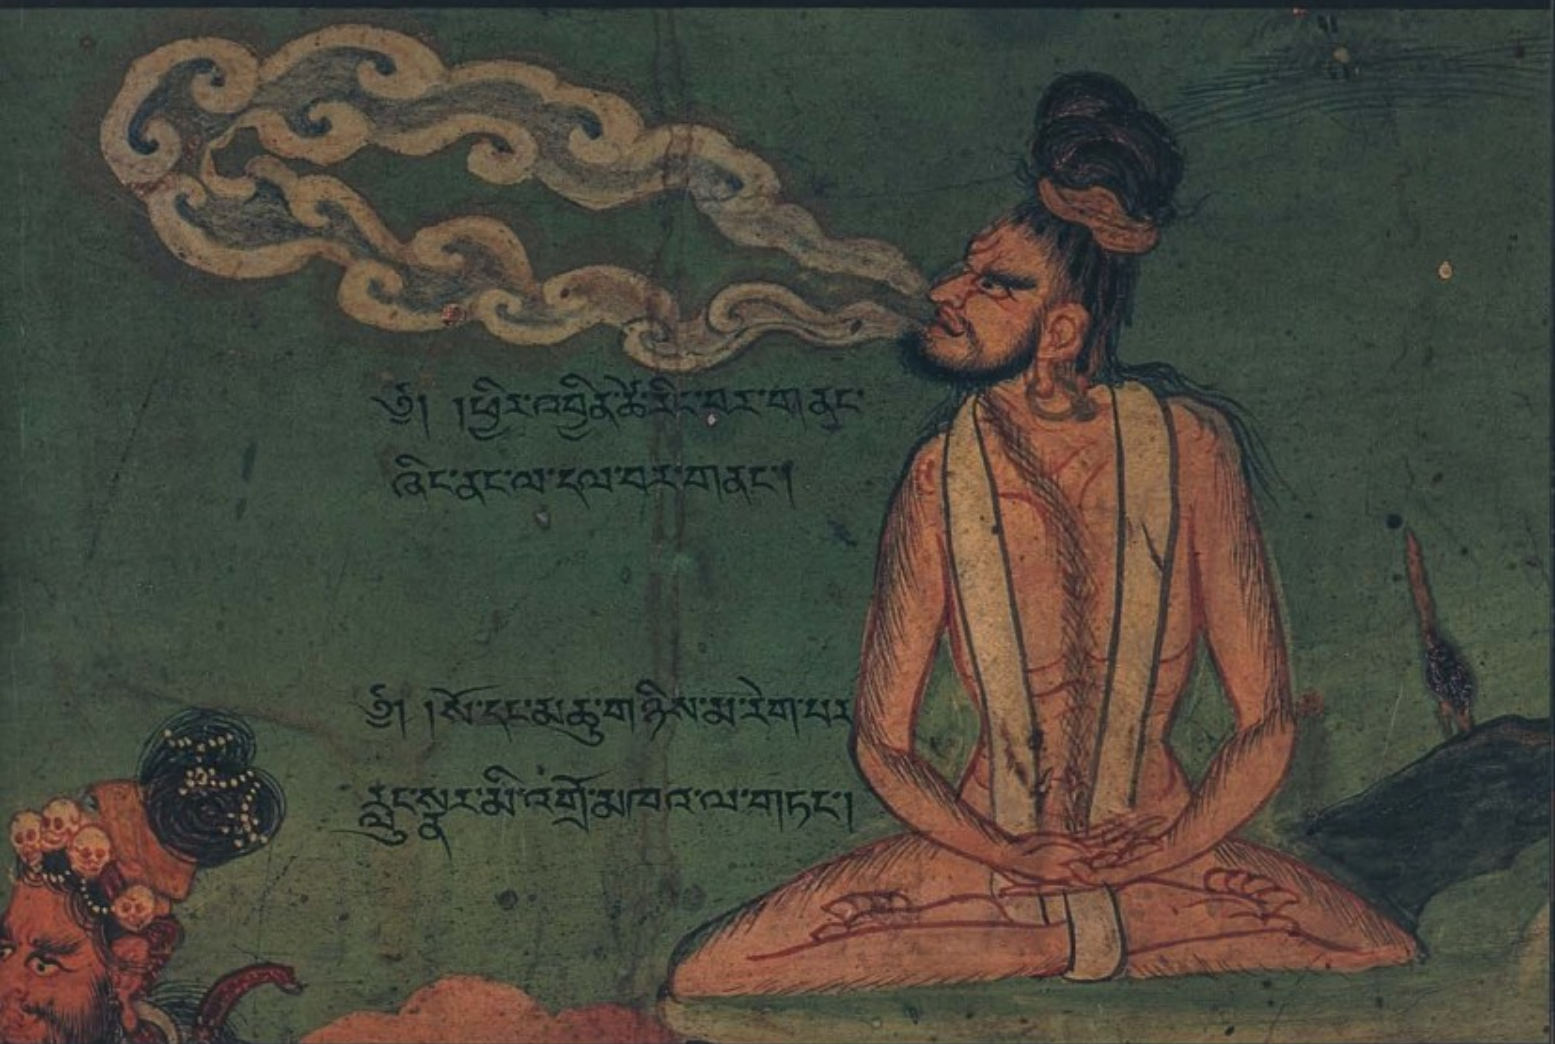 ༄། །ཕྱིར་འབྱིན་ཚེ་རིང་བར་གནང་
ཞིང་ནང་ལ་དལ་བར་གནང་།
༄། །སོ་དང་མཆུ་གཉིས་མ་རེག་པར
རླུང་སྣར་མི་འགྲོ་མཁའ་ལ་གཏང་།